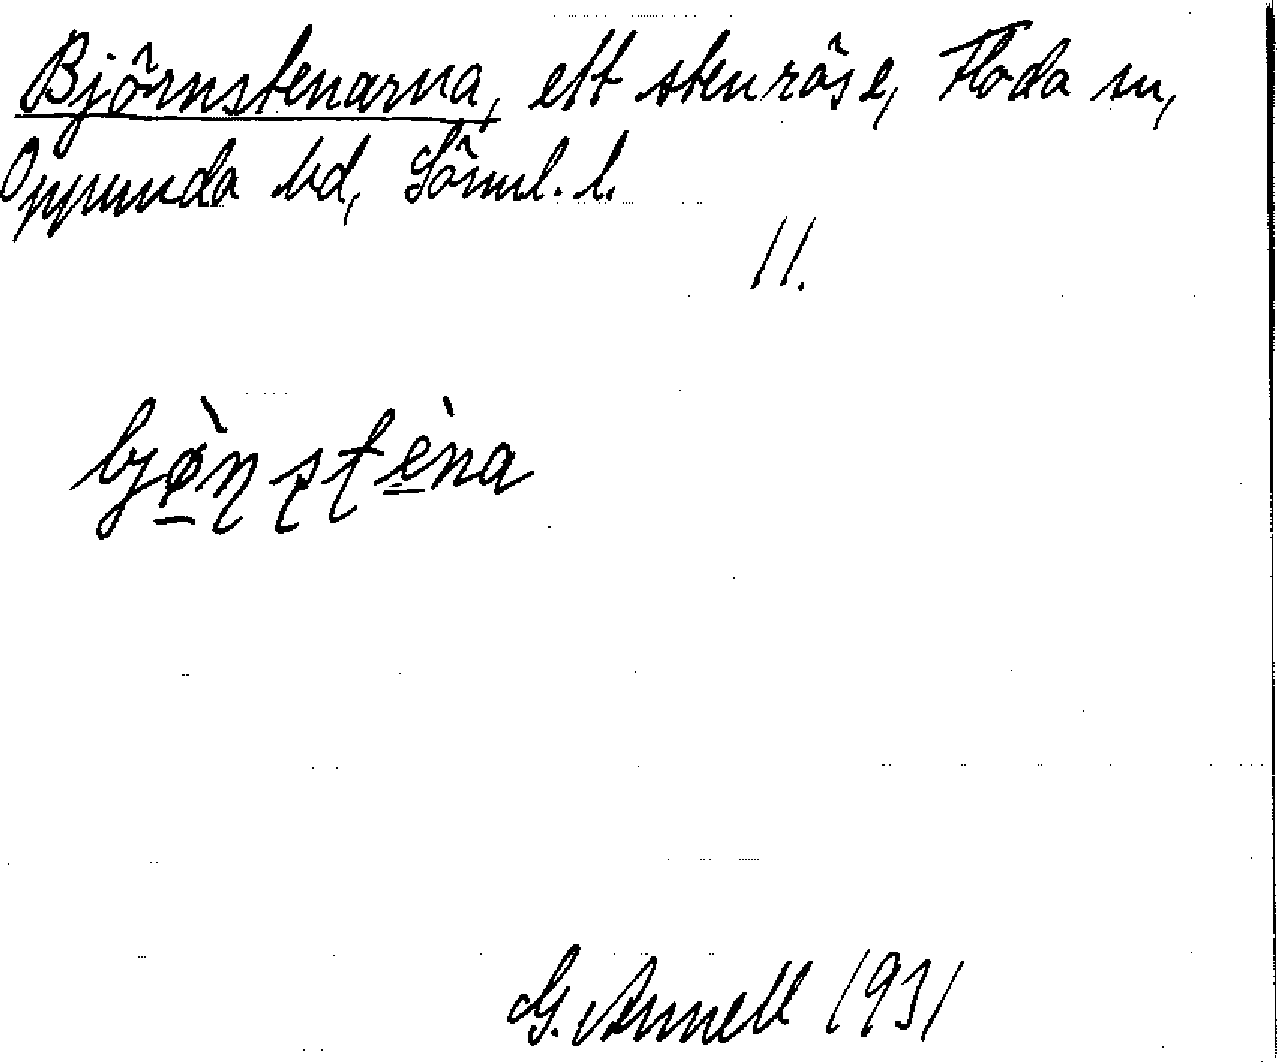 Björnstenarna, ett stenröse, Floda sn,
Oppunda hd, Sörml. l.
11.
bjø̀ɳʂʈèna
G. Annell 1931